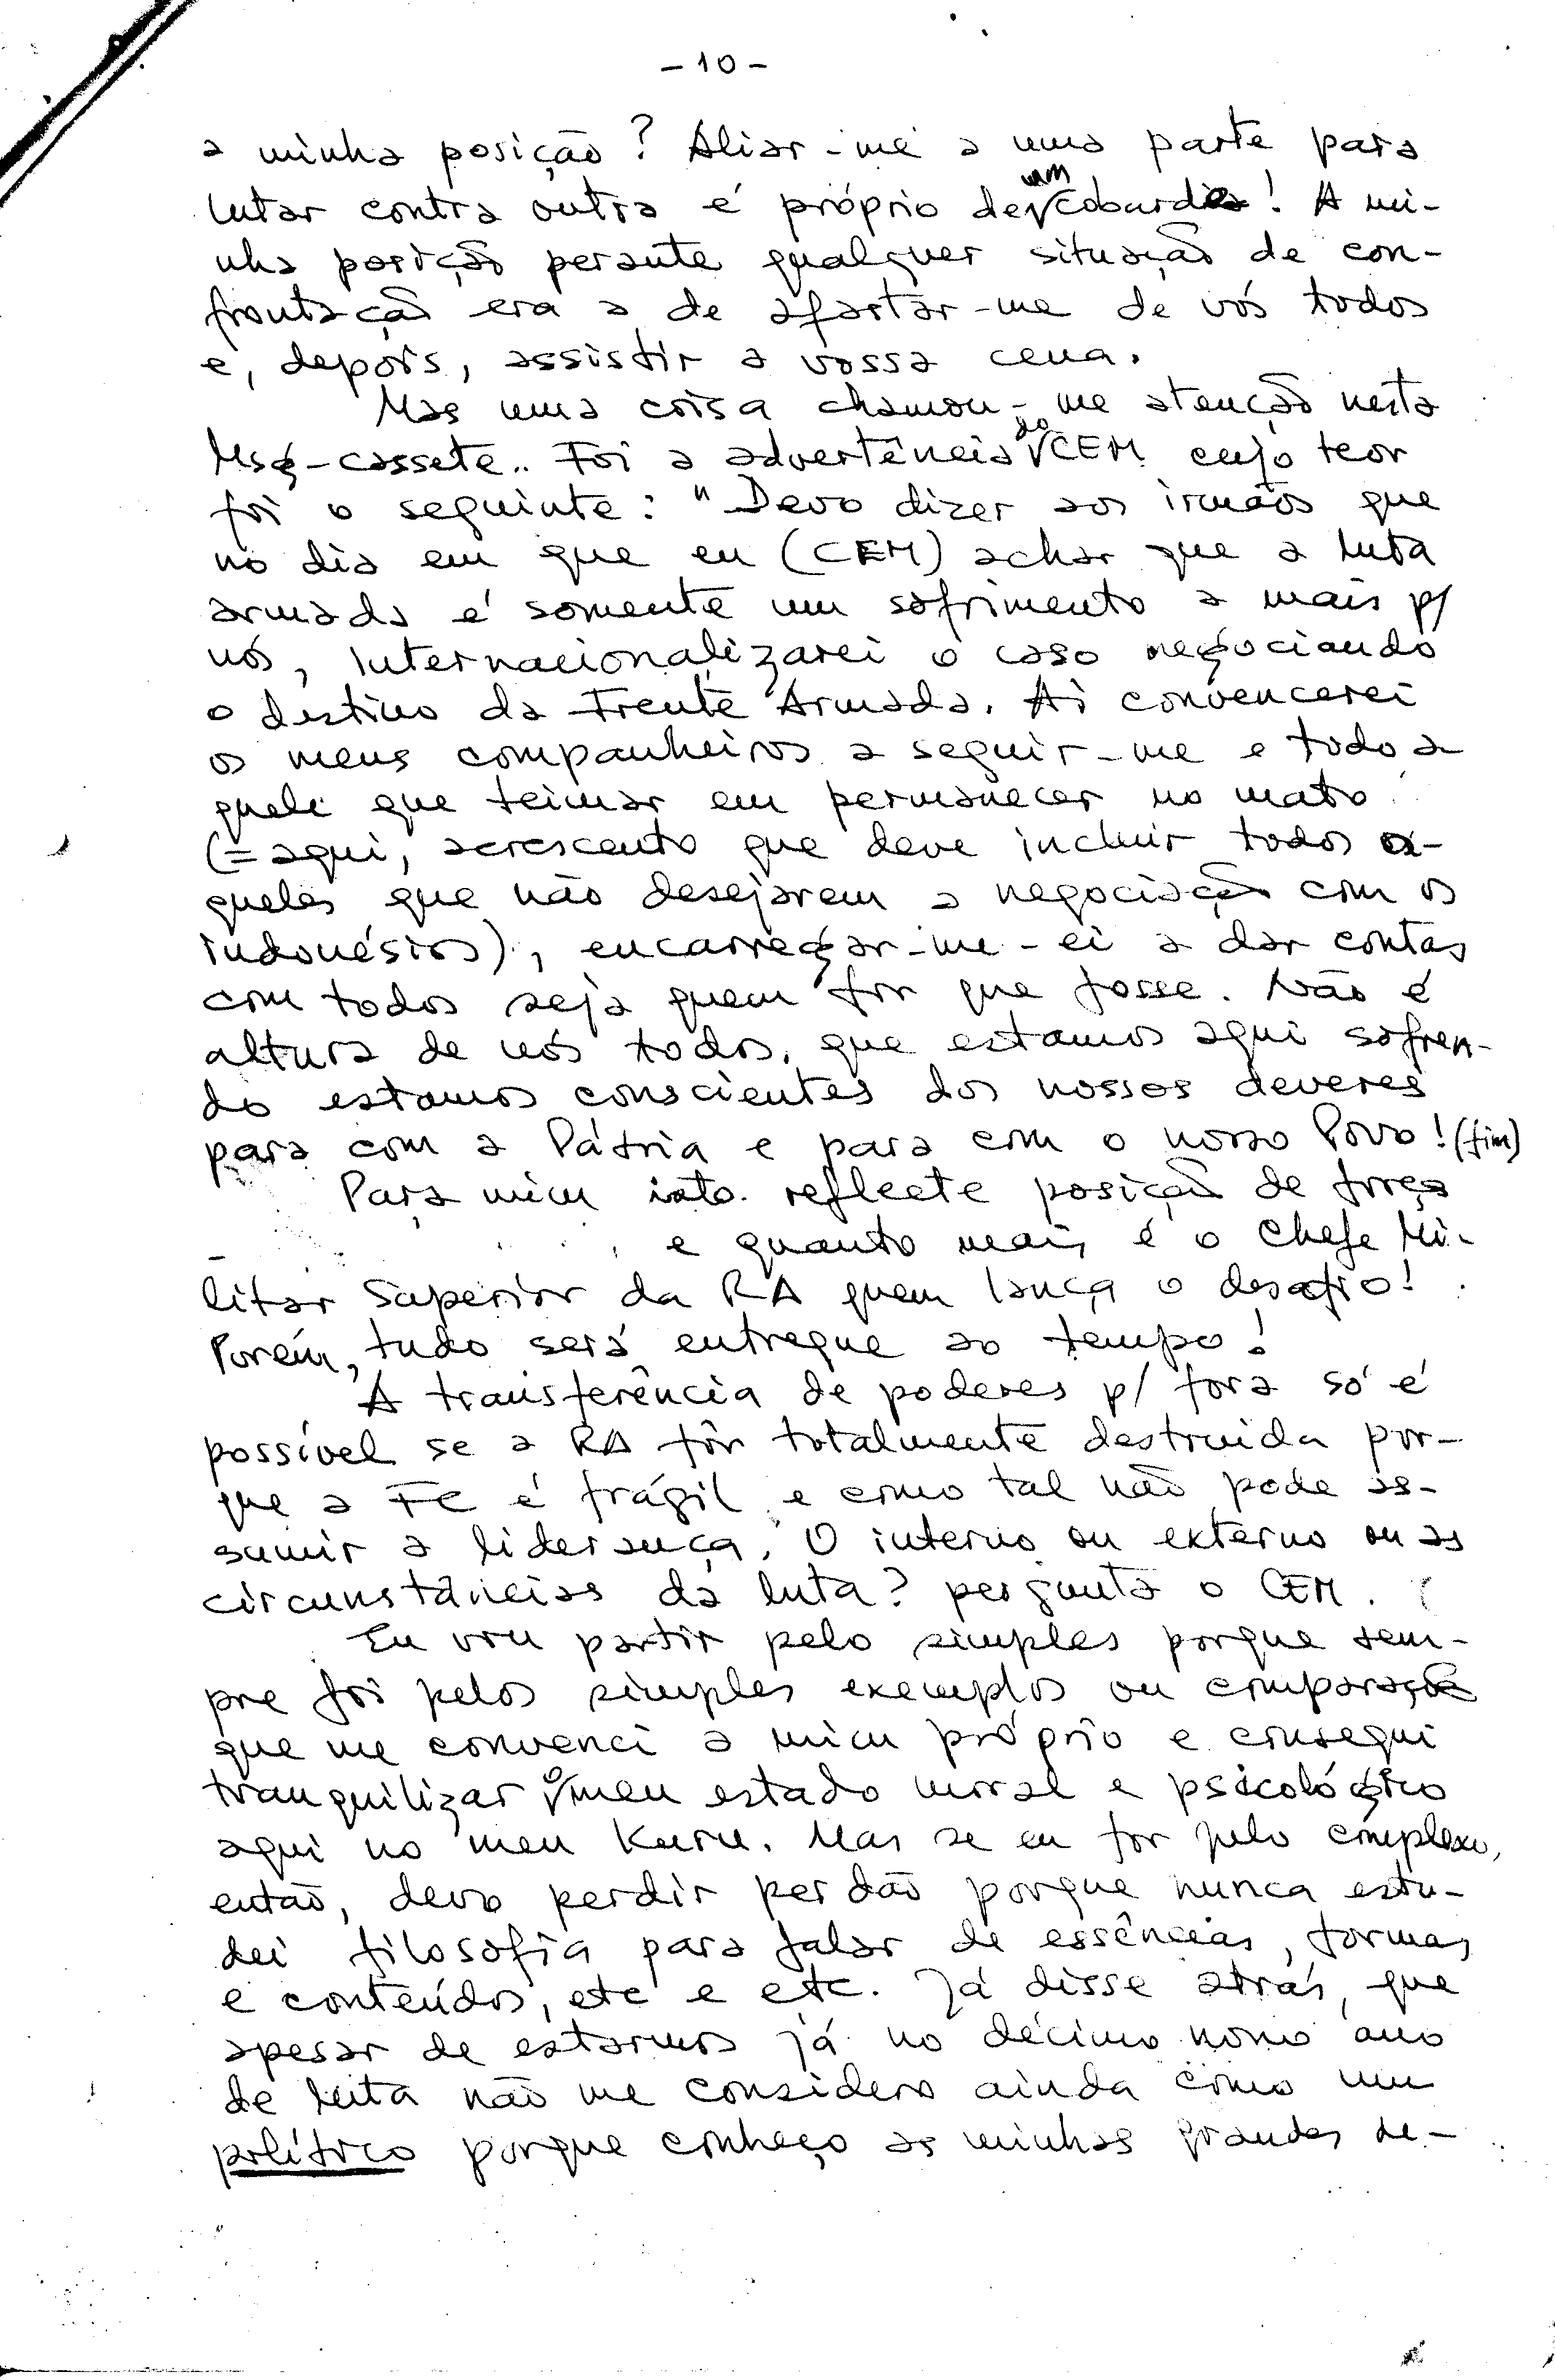 - 10 -
a minha posição? Aliar-me a uma parte para
lutar contra outra é próprio de um cobarde! A mi-
nha posição perante qualquer situação de con-
frontação era a de afastar-me de vós todos
e, depois, assistir a vossa cena.
Mas uma coisa chamou-me atenção nesta
Msg-cassete.. Foi a advertência do CEM cujo teor
foi o seguinte: "Devo dizer aos irmãos que
no dia em que eu (CEM) achar que a luta
armada é somente um sofrimento a mais p/
nós, internacionalizarei o caso negociando
o destino da Frente Armada. Aí convencerei
os meus companheiros a seguir-me e todo a-
quele que teimar em permanecer no mato
(= aqui, acrescento que deve incluir todos a-
queles que não desejarem a negociação com os
indonésios), encarregar-me-ei a dar contas
com todos seja quem for que fosse. Não é
altura de nós todos, que estamos aqui sofren-
do estamos conscientes dos nossos deveres
para com a Pátria e para com o nosso Povo! (fim)
Para mim isto reflecte posição de força
e quanto mais é o Chefe Mi-
litar Superior da RA quem lança o desafio!
Porém, tudo será entregue ao tempo!
A transferência de poderes p/ fora só é
possível se a RA fôr totalmente destruida por-
que a FC é frágil e como tal não pode as-
sumir a liderança. O interno ou externo ou as
circunstâncias da luta? pergunta o CEM.
Eu vou partir pelo simples porque sem-
pre foi pelos simples exemplos ou comparações
que me convenci a mim próprio e consegui
tranquilizar o meu estado moral e psicológico
aqui no meu Kuru. Mas se eu for pelo complexo,
então, devo perdir perdão porque nunca estu-
dei filosofia para falar de essências, formas
e conteúdos, etc e etc. Já disse atrás, que
apesar de estarmos já no décimo nono ano
de luta não me considero ainda como um
político porque conheço as minhas grandes de-